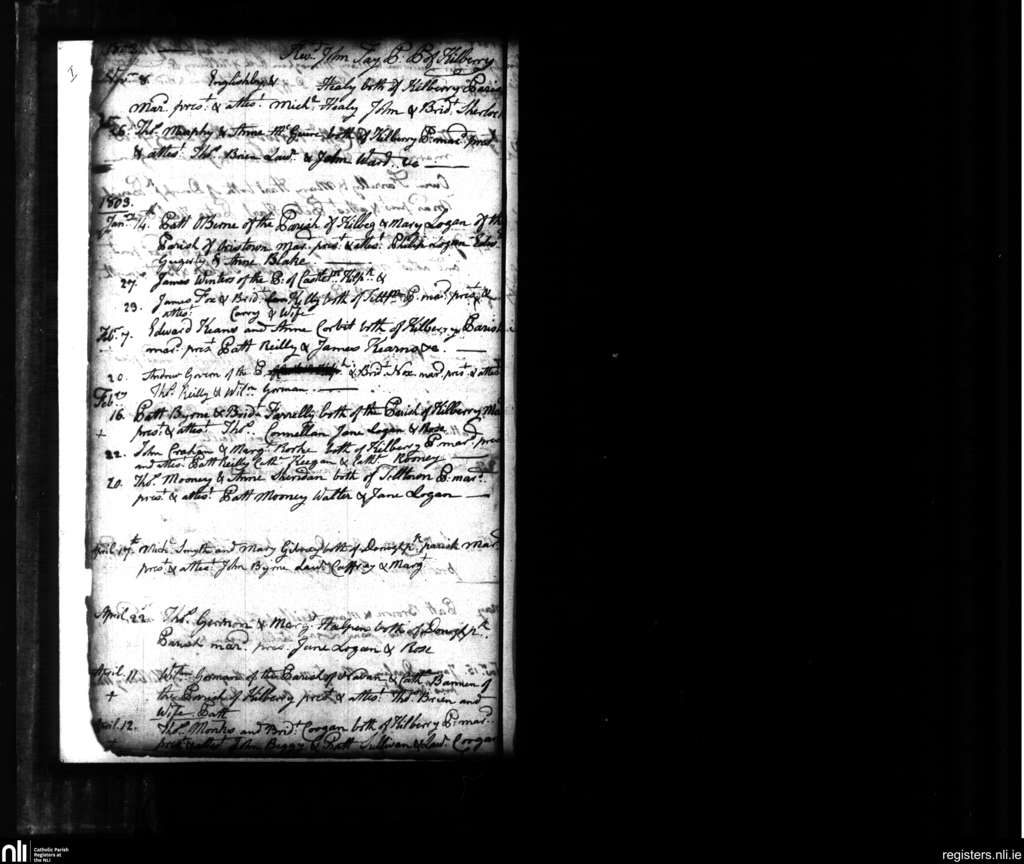 I
1802
Revd. John Fay P. P. of Kilberry
& Healy both of Kilberry Paris
mard. prest. & attest. Michl. Healy John & Bridt. Sherloc
26. Thos. Murphy & Anne McGuire both of Kilberry P: mard. prest.
& attest. Thos. Brien Lawr. & John Ward. &c
1803.
Jany. 14th. Patt O'Berne of the Parish of Kilbeg & Mary Logan of the
Parish of Oristown mard. prest. & attest. Philip Logan
& Anne Blake.
27. James Winters of the P: of &
29. James Fox & Bridt. both of P. mard. prest. &
attest. Carry & Wife
Feb. 7. Edward Kearns and Anne Corbit both of Kilberry Parish
mard. prest. Patt Reilly & James Kearns &c.
20. Andrew Govern of the P. & Bridt. Nox mard. prest. & attest
Thos. Reilly & Wilm. Gorman.
Feby.
16. Patt Byrne & Bridt. Farrelly both of the Parish of Kilberry Ma
prest. & attest. Thos. Connellan Jane Logan & Rose
22. John Graham & Margt. Rorke both of Kilberry P. mard. pres
and attest. Patt Reilly Cathe. Keegan & Cathe. Rooney
20. Thos. Mooney & Anne Sheridan both of Telltown P: mard.
prest. & attest. Patt Mooney Walter & Jane Logan
April 17th. Michl. Smyth and Mary both of parish mard
prest. & attest. John Byrne Lawr. Caffray & Margt.
April 22. Thos. & Margt. Halpen both of
Parish mard. prest. Jane Logan & Rose
April 11 Wilm. Gorman of the Parish of Navan & Cathe. Bannen of
+ the Parish of Kilberry prest. & attest. Thos. Brien and
Wife Patt
April 12. Thos. Monks and Bridt. Coogan both of Kilberry P: mard.
prest. & attest. John Beggy & Patt Sullivan & Lawr. Coogan
nli
Catholic Parish
Registers at
the NLI
registers.nli.ie